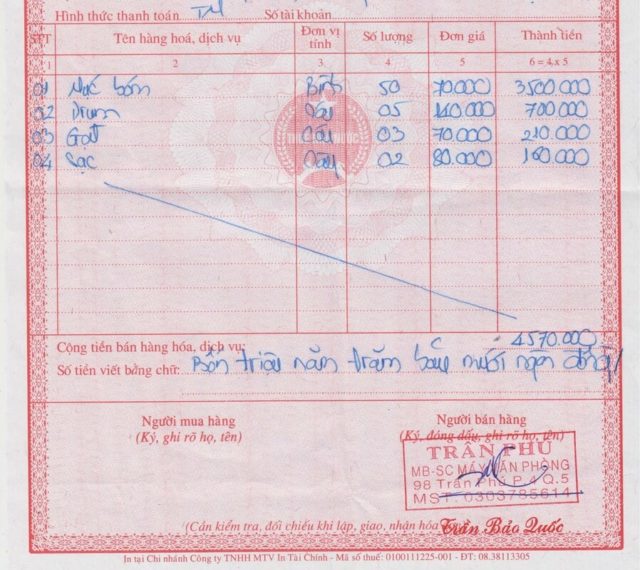 Hình thức thanh toán TM Số tài khoản
STT Tên hàng hoá, dịch vụ Đơn vị tính Số lượng Đơn giá Thành tiền
1 2 3 4 5 6 = 4 x 5
01 Mực bơm Bình 50 70.000 3500.000
02 Drum Cây 05 140.000 700.000
03 Gạt Cây 03 70.000 210.000
04 Sạc Cây 02 80.000 160.000
Cộng tiền bán hàng hóa, dịch vụ: 4570.000
Số tiền viết bằng chữ: Bốn triệu năm trăm bảy mươi ngàn đồng
Người mua hàng Người bán hàng
(Ký, ghi rõ họ, tên) (Ký, đóng dấu, ghi rõ họ, tên)
TRẦN PHÚ
MB-SC MÁY VĂN PHÒNG
98 Trần Phú P.4 Q.5
MST 0303785614
(Cần kiểm tra, đối chiếu khi lập, giao, nhận hóa
Trần Bảo Quốc
In tại Chi nhánh Công ty TNHH MTV In Tài Chính - Mã số thuế: 0100111225-001 - ĐT: 08.38113305